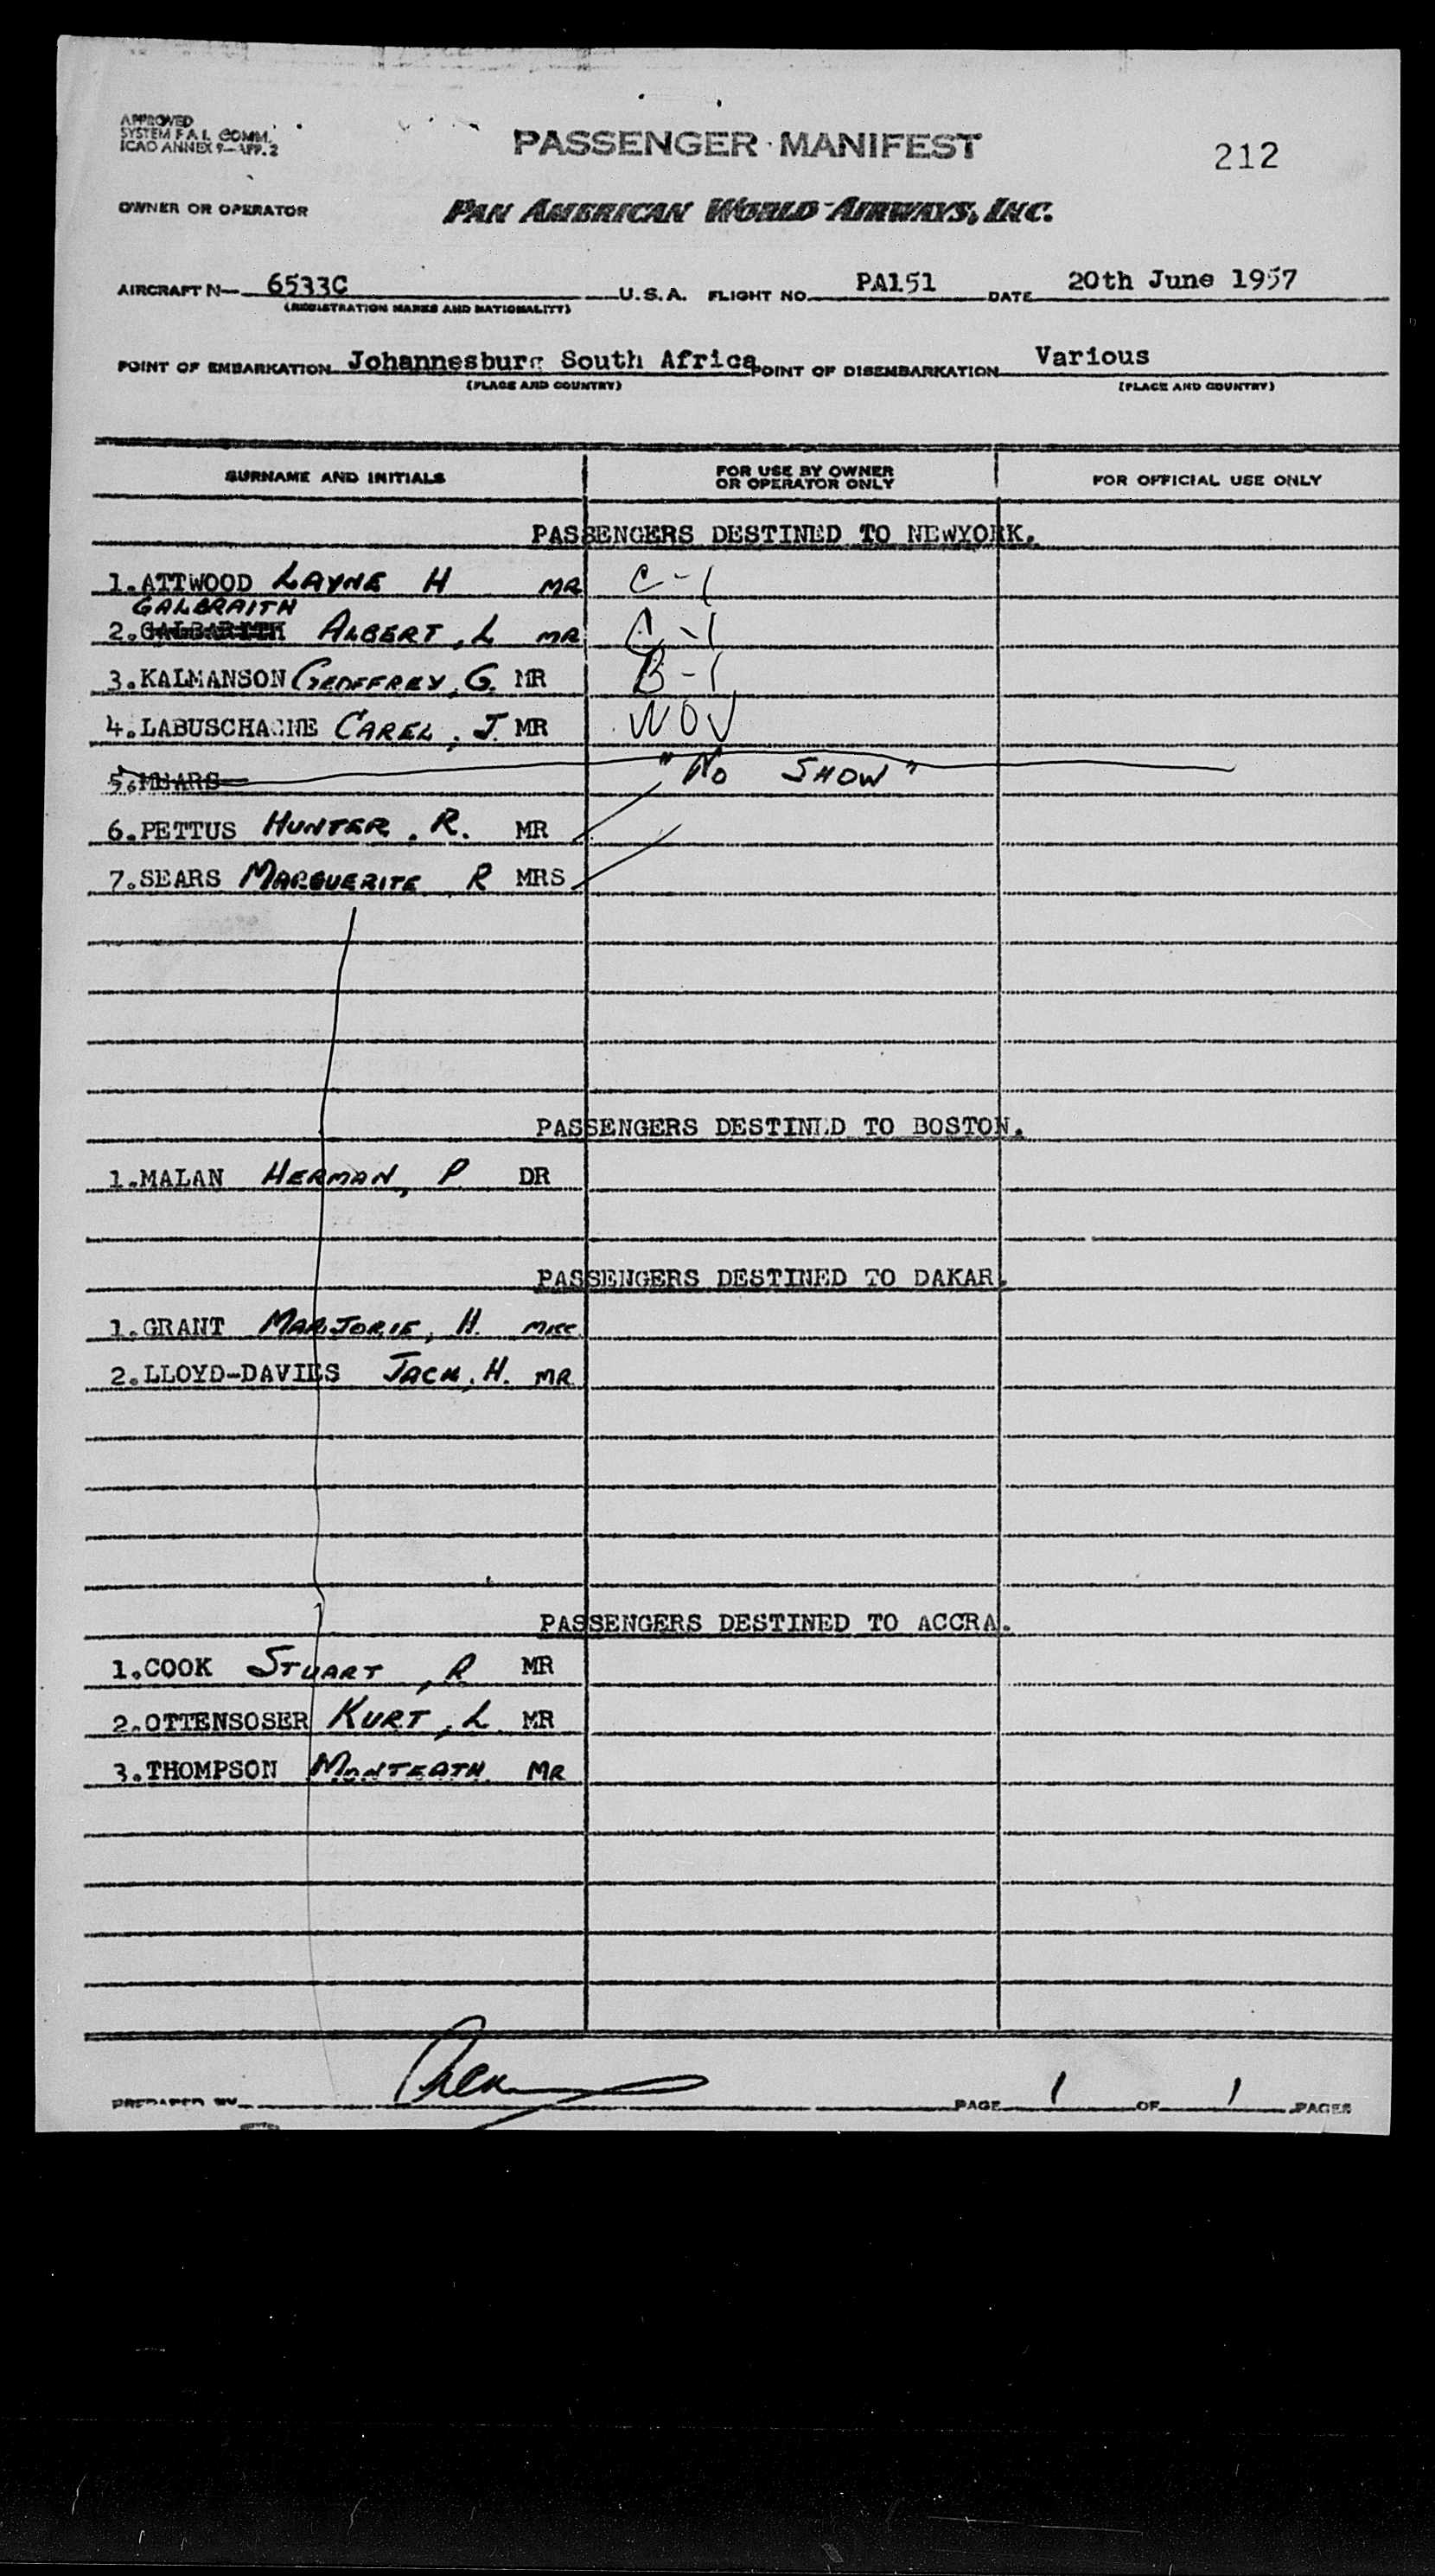 APPROVED
SYSTEM F A L COMM.
ICAO ANNEX 9-APP. 2
PASSENGER MANIFEST
212
OWNER OR OPERATOR PAN AMERICAN WORLD AIRWAYS, INC.
AIRCRAFT N— 6533C U.S.A. FLIGHT NO. PA151 DATE 20th June 1957
(REGISTRATION MARKS AND NATIONALITY)
POINT OF EMBARKATION Johannesburg South Africa POINT OF DISEMBARKATION Various
(PLACE AND COUNTRY) (PLACE AND COUNTRY)
SURNAME AND INITIALS FOR USE BY OWNER OR OPERATOR ONLY FOR OFFICIAL USE ONLY
PASSENGERS DESTINED TO NEWYORK.
1.ATTWOOD LAYNE H MR C-1
GALBRAITH
2. ALBERT, L MR C-1
3.KALMANSON GEOFFREY, G. MR B-1
4.LABUSCHAGNE CAREL, J. MR WOV
5.MEARS "NO SHOW"
6.PETTUS HUNTER, R. MR
7.SEARS MARGUERITE R MRS
PASSENGERS DESTINED TO BOSTON.
1.MALAN HERMAN, P. DR
PASSENGERS DESTINED TO DAKAR.
1.GRANT MARJORIE, H.
2.LLOYD-DAVIES JACK, H. MR
PASSENGERS DESTINED TO ACCRA.
1.COOK STUART, R MR
2.OTTENSOSER KURT, L MR
3.THOMPSON MONTEATH MR
PREPARED BY PAGE 1 OF 1 PAGES